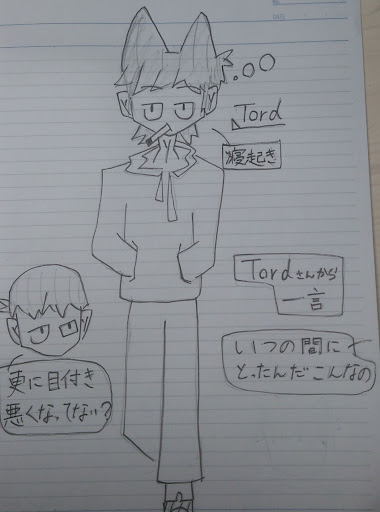 Tord
寝起き
Tordさんから
一言
いつの間に
とったんだこんなの
更に目付き
悪くなってない?